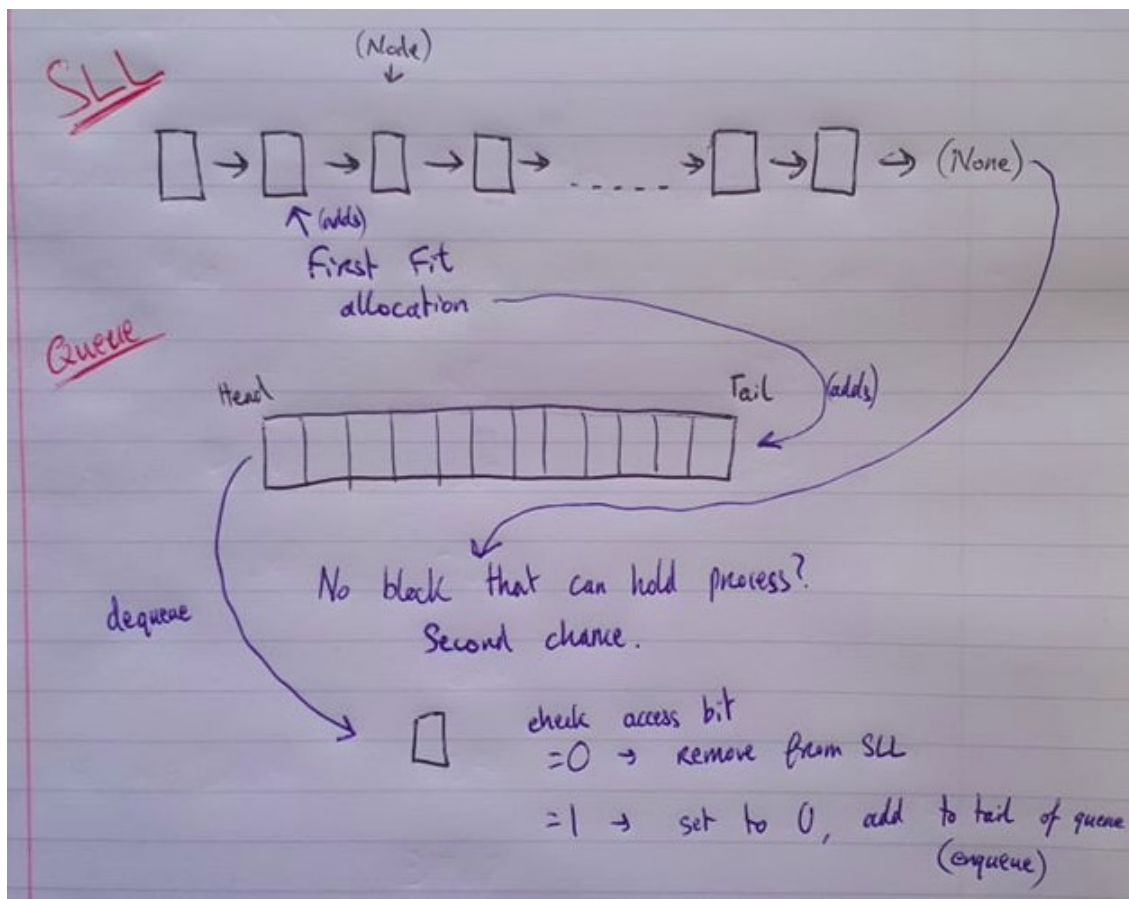 SLL
(Node)
(None)
(adds)
First Fit
allocation
Queue
Head
Tail
(adds)
No block that can hold process?
Second chance.
dequeue
check access bit
=0 → remove from SLL
=1 → set to 0, add to tail of queue
(enqueue)